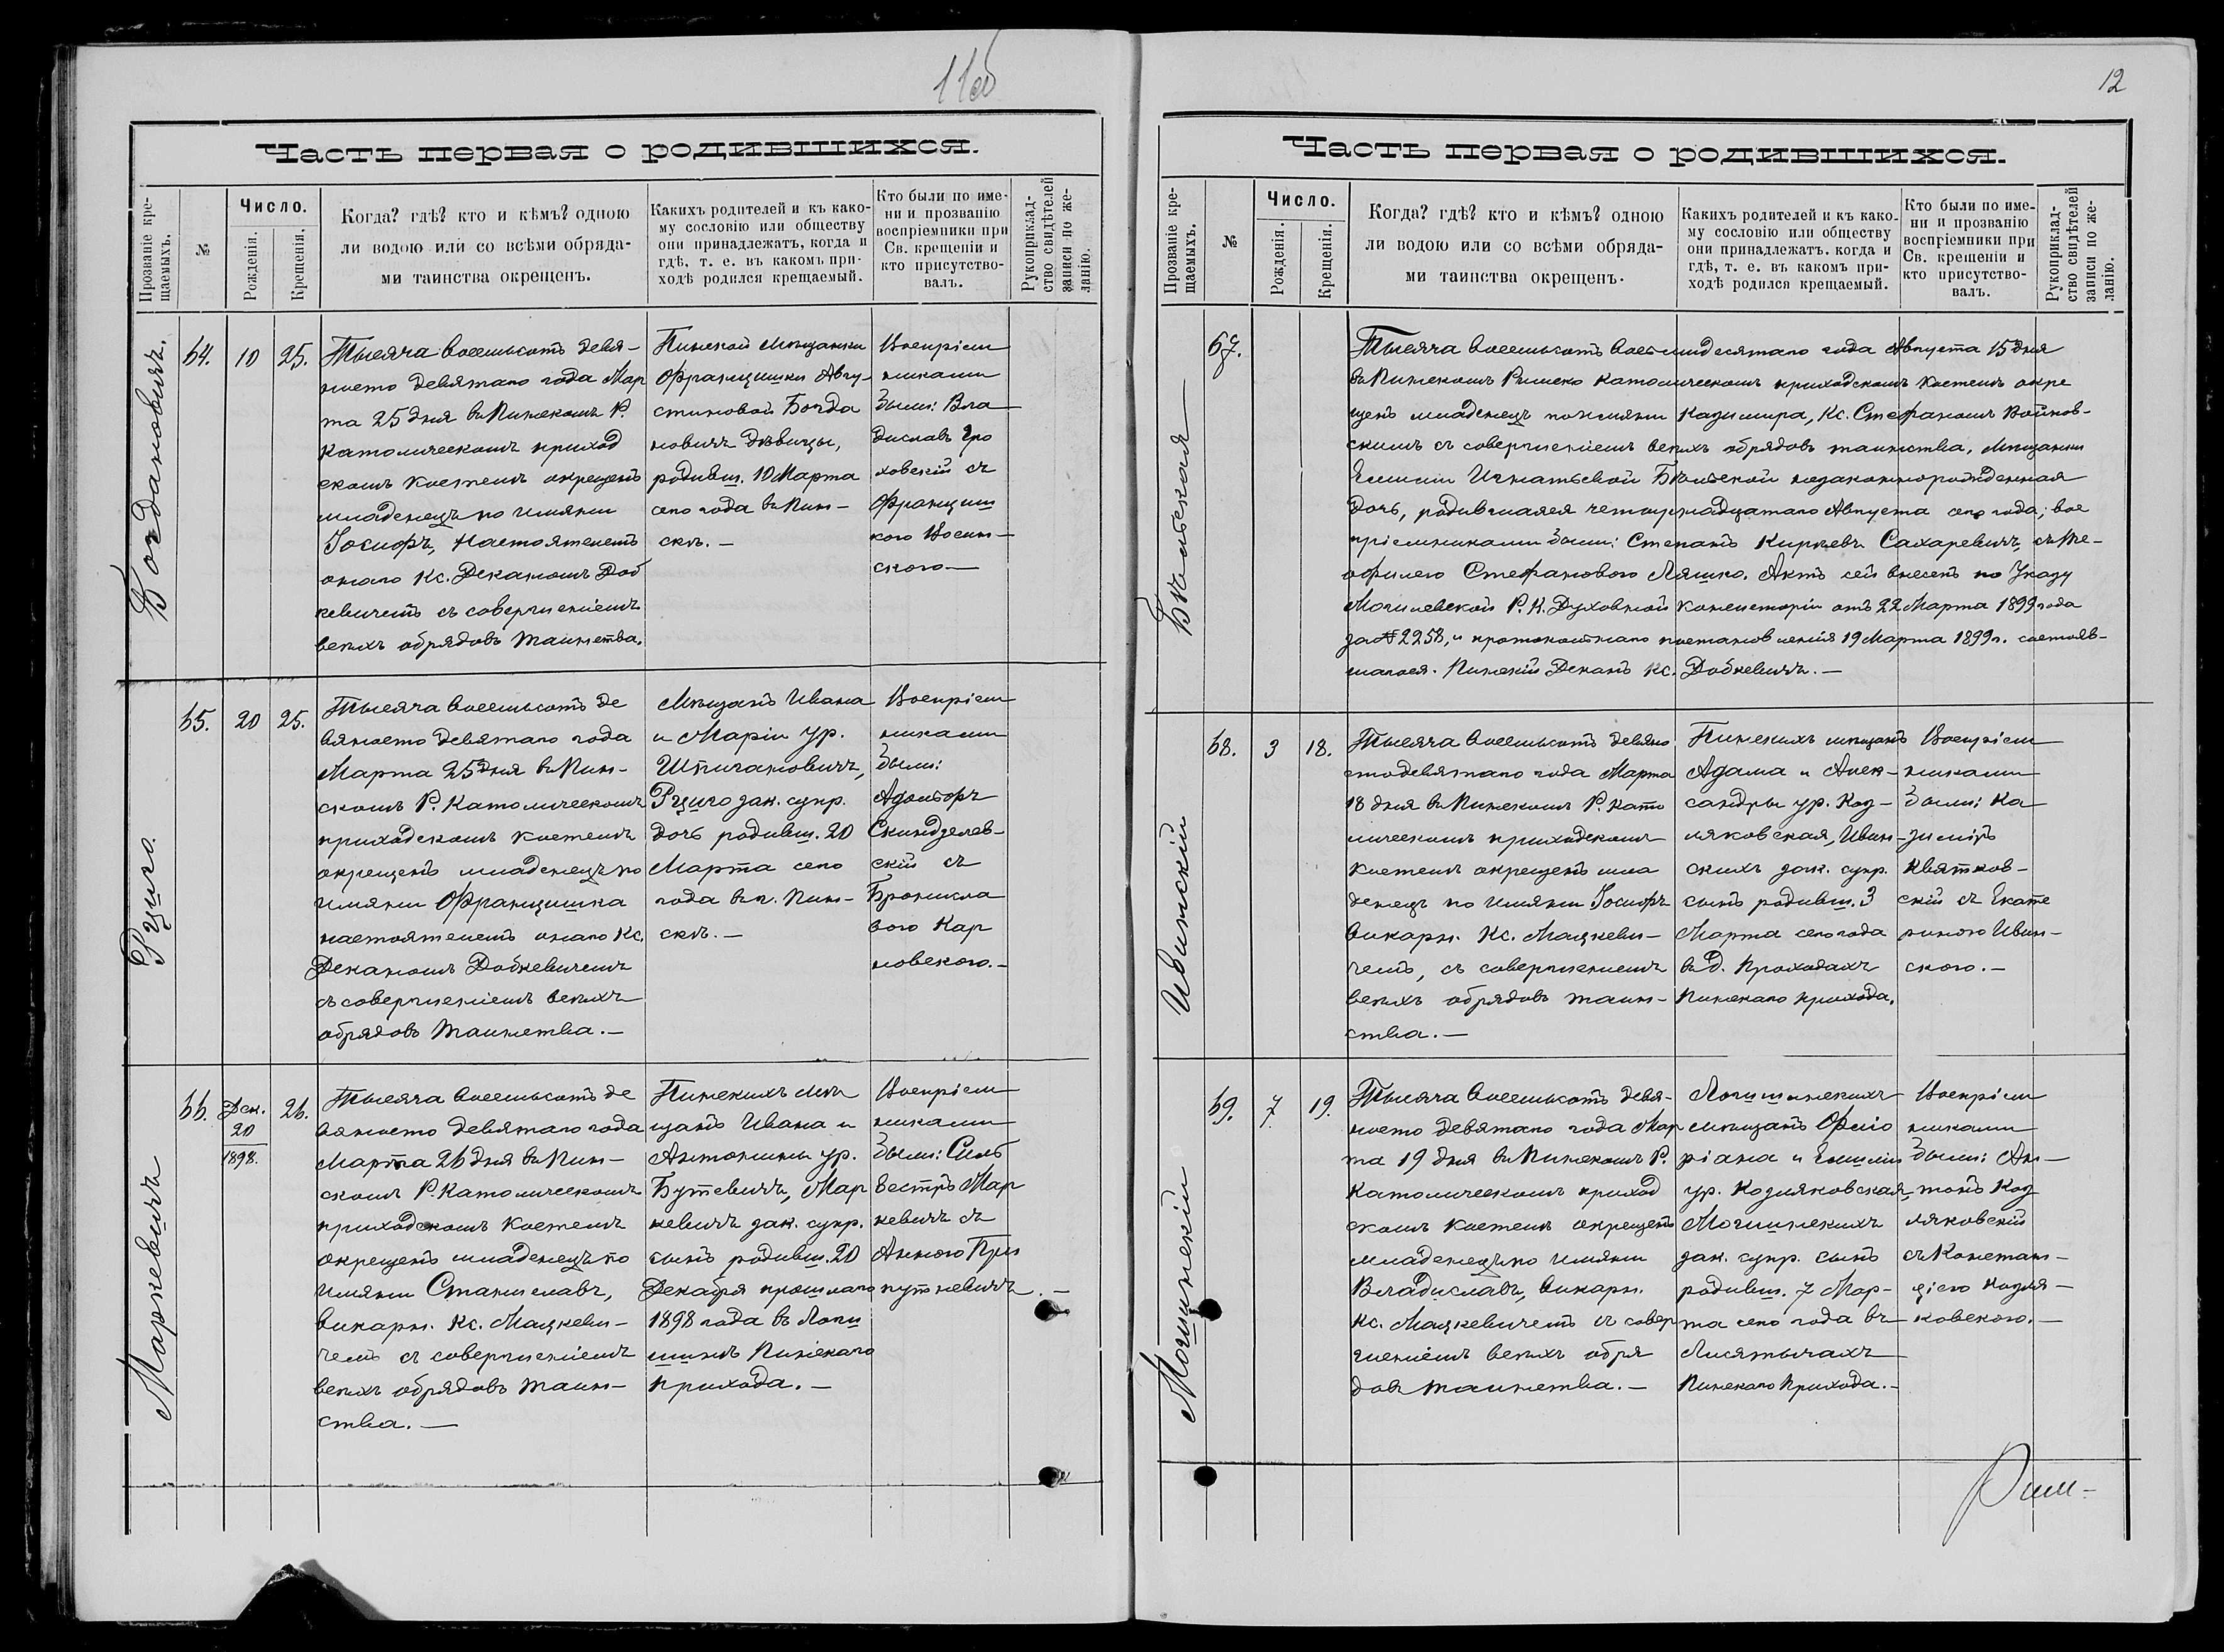 11об
Часть первая о родившихся.
Прозваніе кре-
щаемыхъ.
№
Число.
Рожденія.
Крещенія.
Когда? гдѣ? кто и кѣмъ? одною
ли водою или со всѣми обряда-
ми таинства окрещенъ.
Какихъ родителей и къ како-
му сословію или обществу
они принадлежатъ, когда и
гдѣ, т. е. въ какомъ при-
ходѣ родился крещаемый.
Кто были по име-
ни и прозванію
воспріемники при
Св. крещеніи и
кто присутство-
валъ.
Рукоприклад-
ство свидѣтелей
записи по же-
ланію.
Богдановичъ.
64.
10
25.
Тысяча восемьсотъ девя-
носто девятаго года Мар
та 25 дня въ Пинскомъ Р.
Католическомъ приход
скомъ костелѣ окрещенъ
младенецъ по имяни
Іосифъ, Настоятелемъ
онаго Кс. Деканомъ Доб
кевичемъ съ совершеніемъ
всѣхъ обрядовъ таинства.
Пинской мѣщанки
Францишки Авгу-
стиновой Богда
новичъ дѣвицы,
родивш. 10 Марта
сего года въ Пин-
скѣ. —
Воспріем
никами
были: Вла
диславъ Гро
ховскій съ
Францишкою Восин-
скою —
Рциго.
65.
20
25.
Тысяча восемьсотъ де
вяносто девятаго года
Марта 25 дня въ Пин-
скомъ Р. Католическомъ
приходскомъ костелѣ
окрещенъ младенецъ по
имяни Францишка
настоятелемъ онаго Кс.
Деканомъ Добкевичемъ
съ совершеніемъ всѣхъ
обрядовъ таинства. —
Мѣщанъ Ивана
и Маріи ур.
Шпигановичъ,
Рциго зак. супр.
дочь родивш. 20
Марта сего
года въ г. Пин-
скѣ. —
Воспріем
никами
были:
Адольфъ
Скиндзелев-
скій съ
Брониславою Кар
новскою. —
Маркевичъ
66.
Дек.
20
1898.
26.
Тысяча восемьсотъ де
вяносто девятаго года
Марта 26 дня въ Пин-
скомъ Р. Католическомъ
приходскомъ костелѣ
окрещенъ младенецъ по
имяни Станиславъ,
Викарн. Кс. Мацкеви-
чемъ съ совершеніемъ
всѣхъ обрядовъ таин-
ства. —
Пинскихъ мѣ
щанъ Ивана и
Антонины ур.
Бутевичъ, Мар
кевичъ зак. супр.
сынъ родивш. 20
Декабря прошлаго
1898 года въ Логи
шинѣ Пинскаго
прихода. —
Воспріем
никами
были: Силь
вестръ Мар
кевичъ съ
Анною При
путневичъ. —
12
Часть первая о родившихся.
Прозваніе кре-
щаемыхъ.
№
Число.
Рожденія.
Крещенія.
Когда? гдѣ? кто и кѣмъ? одною
ли водою или со всѣми обряда-
ми таинства окрещенъ.
Какихъ родителей и къ како-
му сословію или обществу
они принадлежатъ. когда и
гдѣ, т. е. въ какомъ при-
ходѣ родился крещаемый.
Кто были по име-
ни и прозванію
воспріемники при
Св. крещеніи и
кто присутство-
валъ.
Рукоприклад-
ство свидѣтелей
записи по же-
ланію.
Бѣльская
67.
Тысяча восемьсотъ восьмидесятаго года Августа 15 дня
въ Пинскомъ Римско Католическомъ приходскомъ костелѣ окре
щенъ младенецъ по имяни Казимира, Кс. Стефаномъ Войнов-
скимъ съ совершеніемъ всѣхъ обрядовъ таинства, Мѣщанки
Емиліи Игнатьевой Бѣльской незаконнорожденная
дочь, родившаяся четырнадцатаго Августа сего года; вос
пріемниками были: Степанъ Кирѣевъ Сахаревичъ, съ Те-
офилею Стефановою Ляшко. Актъ сей внесенъ по Указу
Могилевской Р. К. Духовной Консисторіи отъ 22 Марта 1899 года
за № 2258, и протокольнаго постановленія 19 Марта 1899 г. состояв-
шагося. Пинскій Деканъ Кс. Добкевичъ. —
Ивинскій
68.
3
18.
Тысяча восемьсотъ девяно
стодевятаго года Марта
18 дня въ Пинскомъ Р. Като
лическомъ приходскомъ
костелѣ окрещенъ мла
денецъ по имяни Іосифъ
Викарн. Кс. Мацкеви-
чемъ, съ совершениемъ
всѣхъ обрядовъ таин-
ства. —
Пинскихъ мѣщанъ
Адама и Алек-
сандры ур. Коз-
ляковская, Ивин-
скихъ зак. супр.
сынъ родивш. 3
Марта сего года
въ д. Проходахъ
Пинскаго прихода.
Воспріем
никами
были: Ка
зиміръ
Квятков-
скій съ Екате
риною Ивин-
скою. —
Могшинскій
69.
7
19.
Тысяча восемьсотъ девя-
носто девятаго года Мар
та 19 дня въ Пинскомъ Р.
Католическомъ приход
скомъ костелѣ окрещенъ
младенецъ по имяни
Владиславъ, Викарн.
Кс. Мацкевичемъ съ совер
шеніемъ всѣхъ обря
довъ таинства. —
Логишинскихъ
мѣщанъ Флю
ріана и Емиліи
ур. Козляковская,
зак. супр. сынъ
родивш. 7 Мар-
та сего года въ
Лисятычахъ
Пинскаго прихода. —
Воспріем
никами
были: Ан-
тонъ Коз
ляковскій
съ Констан-
ціею Козля-
ковскою. —
Рим-